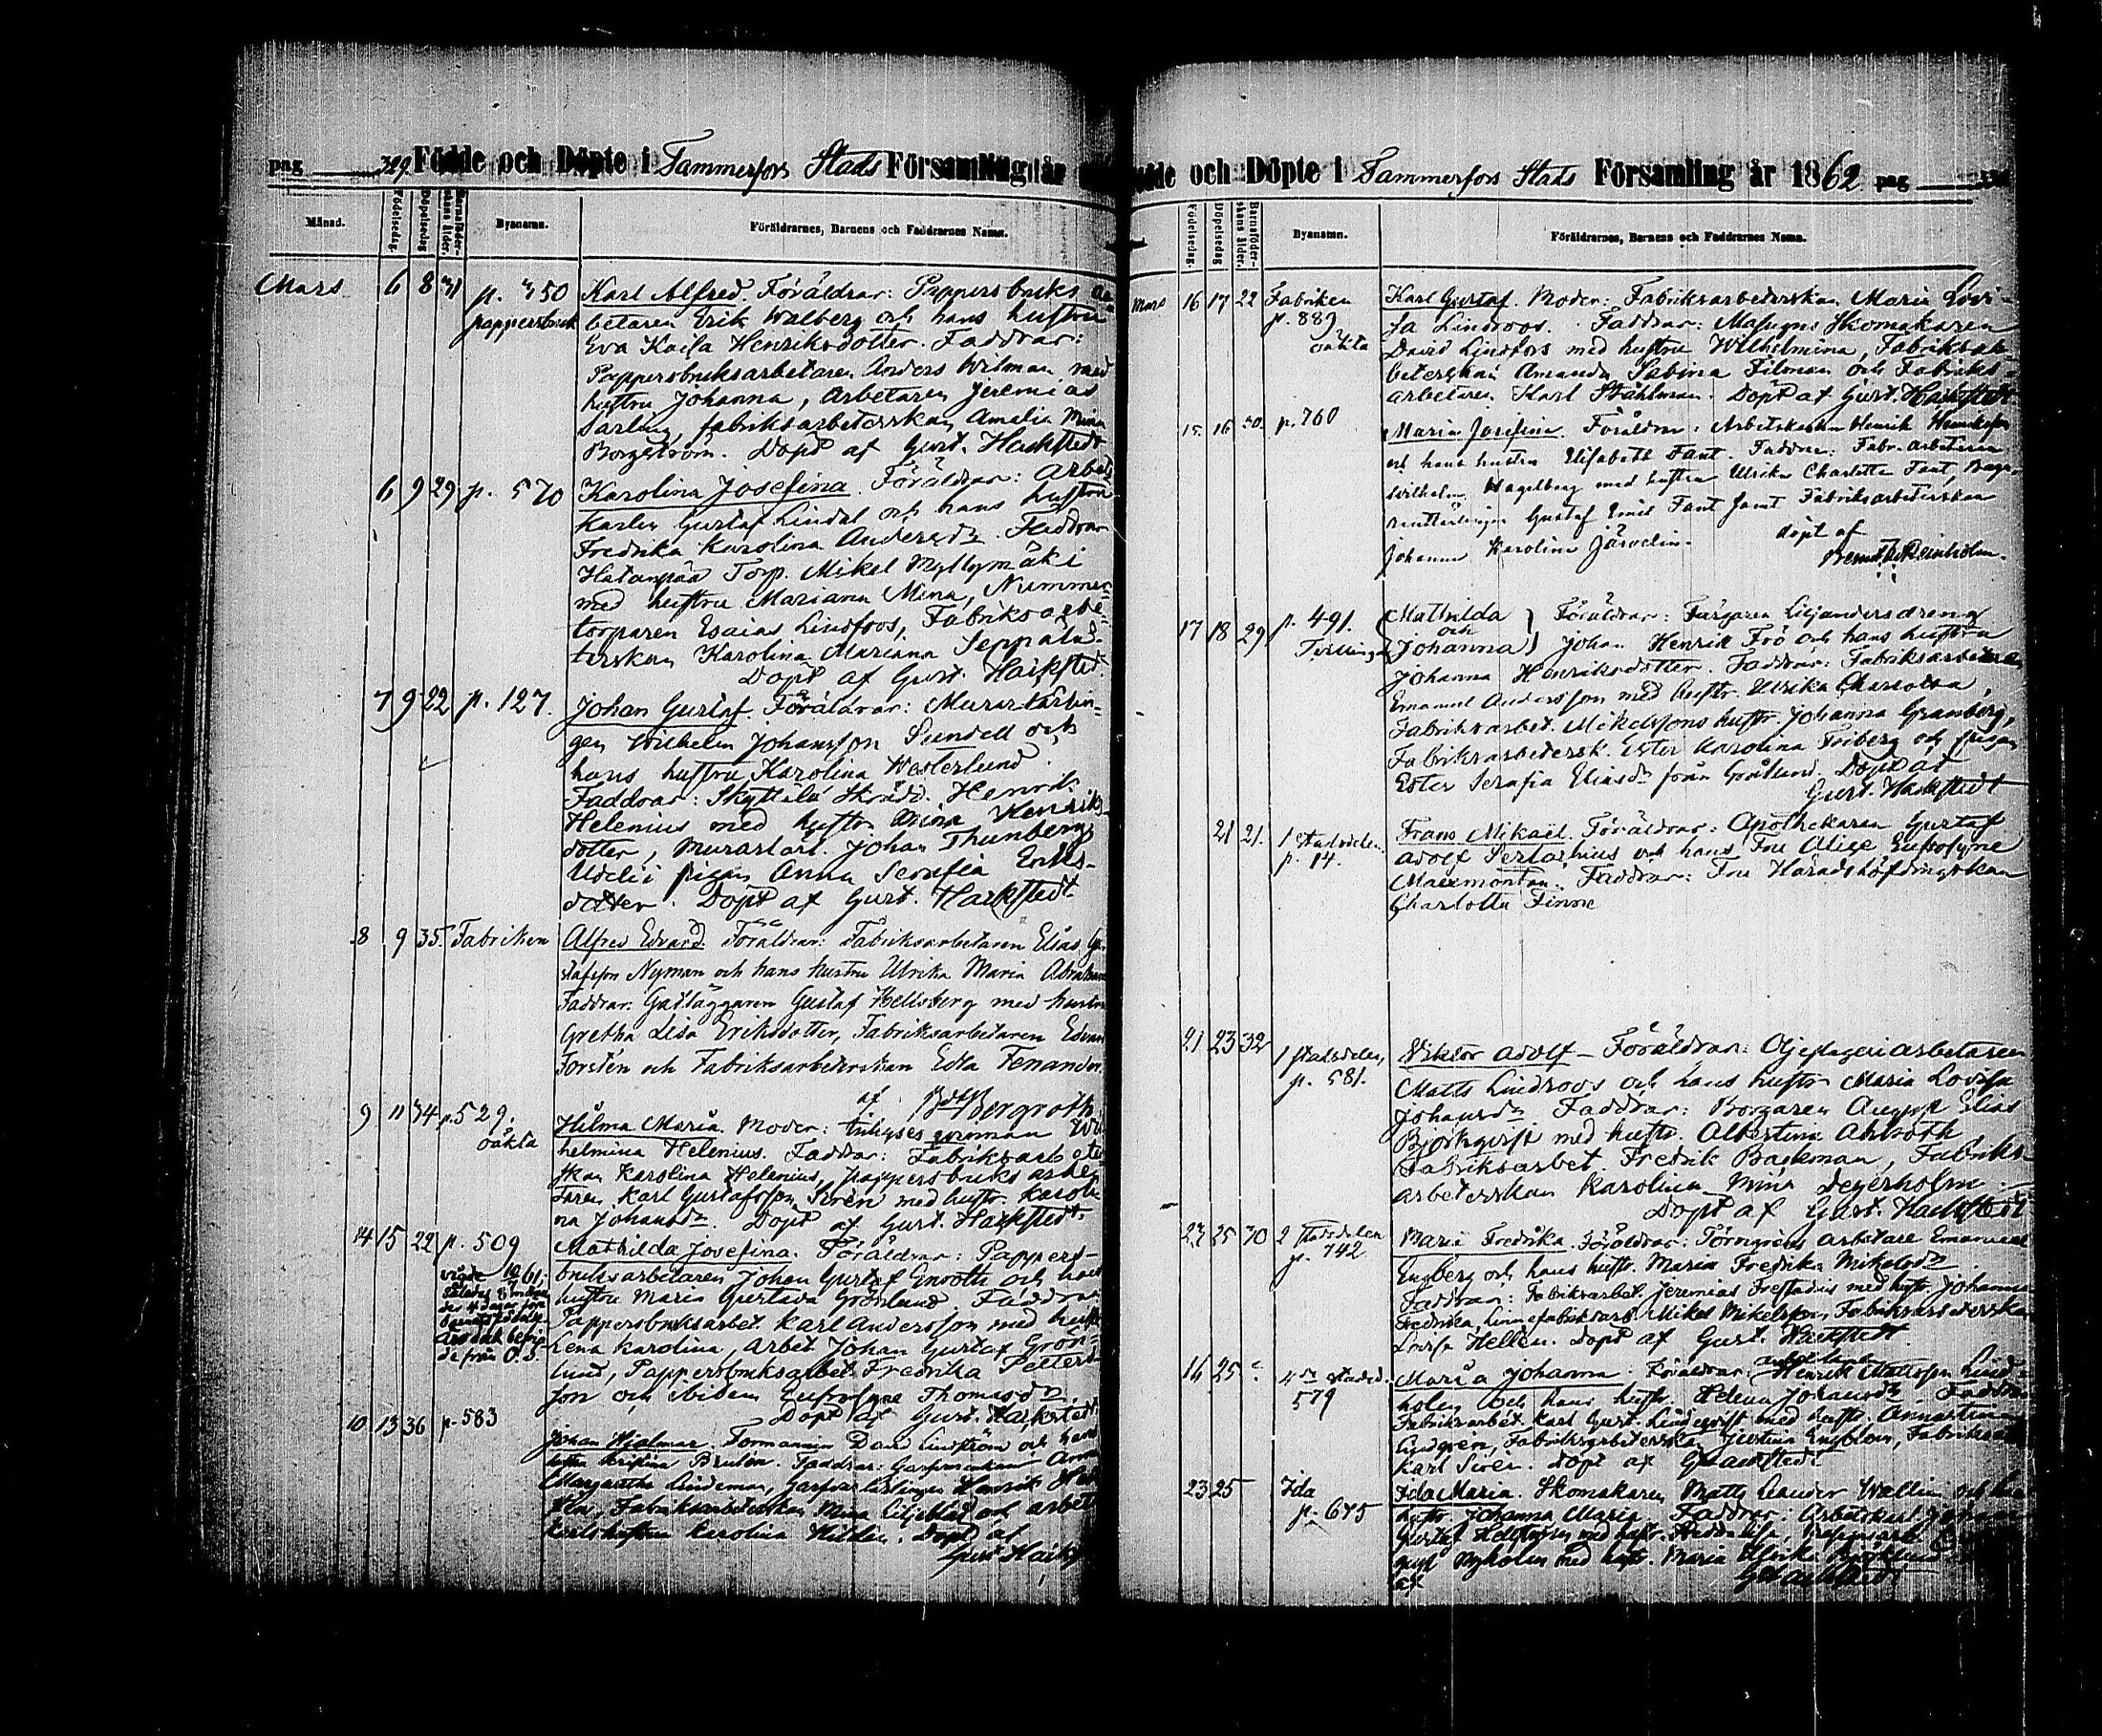 pag 329. Födde och Döpte i Tammerfors Stads Församling år
Månad. Födelsedag. Döpelsedag. Barnaföderskans ålder. Byanamn. Föräldrarnes, Barnens och Faddrarnes Namn.
Mars 6 8 31 p. 350 Karl Alfred. Föräldrar: Pappersbruks ar-
pappersbruk betaren Erik Walberg och hans hustru
Eva Kaisa Henriksdotter. Faddrar:
Pappersbruksarbetaren Anders Wilman med
hustru Johanna, Arbetaren Jeremias
Sarlin, fabriksarbeterskan Amalia Mina
Borgström. Döpt af Gust. Hackstedt
6 9 29 p. 570 Karolina Josefina. Föräldrar: Arbets
karlen Gustaf Lindal och hans hustru
Fredrika Karolina Andersdr. Faddrar
Hatanpää Torp. Mikel Myllymäki
med hustru Mariana Mina, Nummer-
torparen Esaias Lindfors, Fabriksarbe-
terskan Karolina Mariana Seppälä.
Döpt af Gust. Hackstedt.
7 9 22 p. 127. Johan Gustaf. Föräldrar: Murarlärlin-
gen Wilhelm Johansson Sundell och
hans hustru Karolina Westerlund.
Faddrar: Skyttälä Skrädd. Henrik
Helenius med hustr. Mina Henriks-
dotter, Murarlärl. Johan Thunberg
Udeli pigan Anna Serafia Eriks-
dotter. Döpt af Gust. Hackstedt
8 9 35. Fabriken Alfred Edvard. Föräldrar: Fabriksarbetaren Elias Gu-
stafsson Nyman och hans hustru Ulrika Maria Abraham
Faddrar: Gatläggaren Gustaf Hellsberg med hustru
Gretha Lisa Eriksdotter, Fabriksarbetaren Edvard
Forstén och Fabriksarbeterskan Edla Fenander.
af Bergroth
9 11 34 p. 529. Hilma Maria. Moder: inhyses qvinnan Wil-
oäkta helmina Helenius. Faddrar: Fabriksarbeter
skan Karolina Helenius, pappersbruks arbe
taren Karl Gustafsson Sirén med hustr. Karoli
na Johansdr. Döpt af Gust. Hackstedt.
14 15 22 p. 509 Mathilda Josefina. Föräldrar: Pappers-
vigde 10/7 61, bruksarbetaren Johan Gustaf Enooth och hans
hustru Maria Gustava Grönlund Faddrar
Pappersbruksarbet. Karl Andersson med hustr
Lena Karolina, Arbet. Johan Gustaf Grön-
lund, Pappersbruksarbet. Fredrika Petters-
son och Eufrosyne Thomasdr
Döpt af Gust. Hackstedt
10 13 36 p. 583 Johan Hjalmar. Formannen David Lindström och hans
hustru Kristina Brulin. Faddrar:
Margaretha Lindeman, Garfvarlärlingen Henrik
Fabriksarbeterskan Mina Liljeblad och arbets
karlshustrun Karolina Hilden. Döpt af
Gust Hackst
Födde och Döpte i Tammerfors Stads Församling år 1862 pag
Födelsedag. Döpelsedag. Barnaföderskans ålder. Byanamn. Föräldrarnes, Barnens och Faddrarnes Namn.
Mars 16 17 22 Fabriken Karl Gustaf. Moder: Fabriksarbeterskan Maria Lovi-
p. 889 sa Lindroos. Faddrar: Skomakaren
oäkta David Lindfors med hustru Wilhelmina, Fabriksar-
beterskan Amanda Sabina Filman och Fabriks-
arbetaren Karl Ståhlman. Döpt af Gust. Hackstedt
15 16 30. p. 760 Maria Josefina. Föräldrar: Arbetskarlen Henrik Henriksson
och hans hustru Elisabeth Fant. Faddrar: Fabr. arbetaren
Wilhelm Hagelberg med hustru Ulrika Charlotta Fant,
Gustaf Emil Fant samt Fabriksarbeterskan
Johanna Karolina Järvelin. döpt af
Reinholm.
17 18 29 p. 491. Mathilda Föräldrar: Färgaren Liljanders dreng
och
Tvillingar Johanna Johan Henrik Frö och hans hustru
Johanna Henriksdotter. Faddrar: Fabriksarbetaren
Emanuel Andersson med hustr. Ulrika Charlotta,
Fabriksarbet. Mikelssons hustr. Johanna Granberg,
Fabriksarbetersk. Ester Karolina Friberg och pigan
Ester Serafia Eliasdr från Grålund. Döpt af
Gust. Hackstedt
21 21. 1 stadsdelen. Frans Mikaël. Föräldrar: Apothekaren Gustaf
p. 14. Adolf Sertorius och hans Fru Alice Eufrosyne
Maexmontan. Faddrar: Fru Häradshöfdingskan
Charlotta Finne
21 23 32 1 stadsdelen, Viktor Adolf – Föräldrar: Oljeslageriarbetaren
p. 581. Matts Lindroos och hans hustr. Maria Lovisa
Johansdr Faddrar: Borgaren August Elias
Björkqvist med hustr. Albertina Ahlroth
Fabriksarbet. Fredrik Backman, Fabriks-
arbeterskan Karolina Mina Segerholm.
Döpt af Gust. Hackstedt
23 25 30 2 stadsdelen Maria Fredrika. Föräldrar: arbetare Emanuel
p. 742 Engberg och hans hustr. Maria Fredrika Mikelsdr
Faddrar: Fabriksarbet. Jeremias Frestadius med hustr. Johanna
Fredrika, Linnefabriksarb. Mikel Mikelsson, Fabriksarbeterska
Lovisa Hellén. Döpt af Gust. Hackstedt
16 25 4de stadsd. Maria Johanna. Föräldrar: Henrik Mattsson Lind-
579 holm och hans hustr. Helena Johansdr Faddrar
Fabriksarbet. Karl Gust. Lindeqvist med hustr. Annastina
Lindgrén, Fabriksarbeterska Justina Engblom, Fabriksarb
Karl Siren. Döpt af G Hackstedt
23 25 Ida Ida Maria. Skomakaren Matts Leander Wallin och hans
p. 675 hustr. Johanna Maria. Faddrar: Arbetskarl Johan
Gustaf med hustr. Hedda Lisa,
Nyholm med hustr. Maria Ulrika
af G Hackstedt